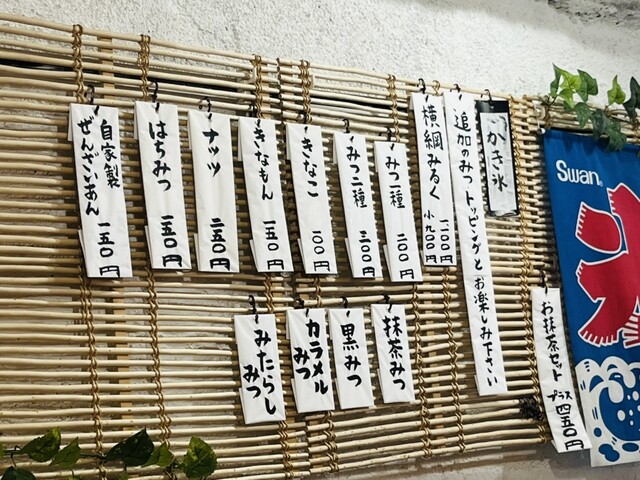 かき氷
追加のみつ トッピングと お楽しみ下さい
横綱みるく 一二〇〇円
小 九〇〇円
みつ一種 二〇〇円
みつ二種 三〇〇円
きなこ 一〇〇円
きなもん 一五〇円
ナッツ 二五〇円
はちみつ 一五〇円
自家製
ぜんざいあん 一五〇円
抹茶みつ
黒みつ
カラメル
みつ
みたらし
みつ
お抹茶セット
プラス 四五〇円
Swan®
氷